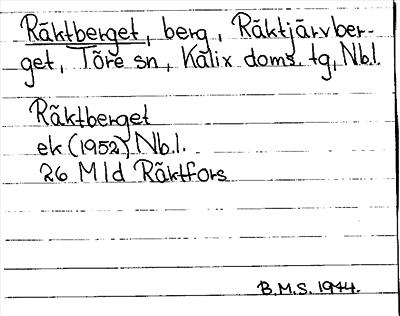 Räktberget, berg, Räktjärvber-
get, Töre sn, Kalix doms. tg, Nb.l.
Räktberget
ek (1952) Nb.l.
26 Mld Räktfors
B.M.S. 1944.